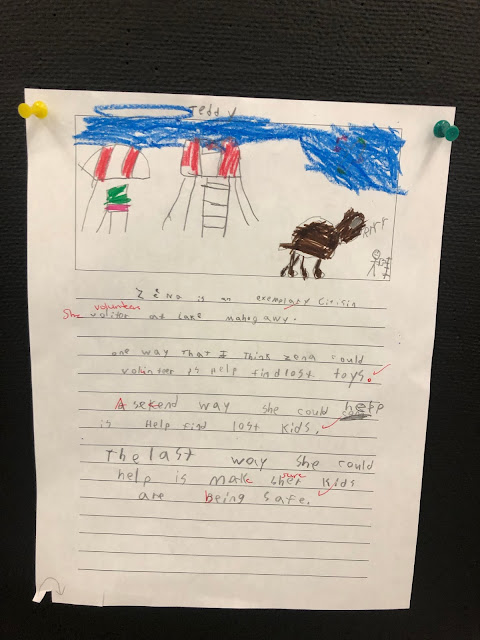 Teddy
Grrr
Zena is an exemplary Citisin
She volunteers volitor at Lake Mahogawy.
one way That I Think Zena could
volunteer is Help find lost toys.
A sekend way she could help
is Help find lost kids.
The last way she could
help is make sher sure kids
are Being safe.